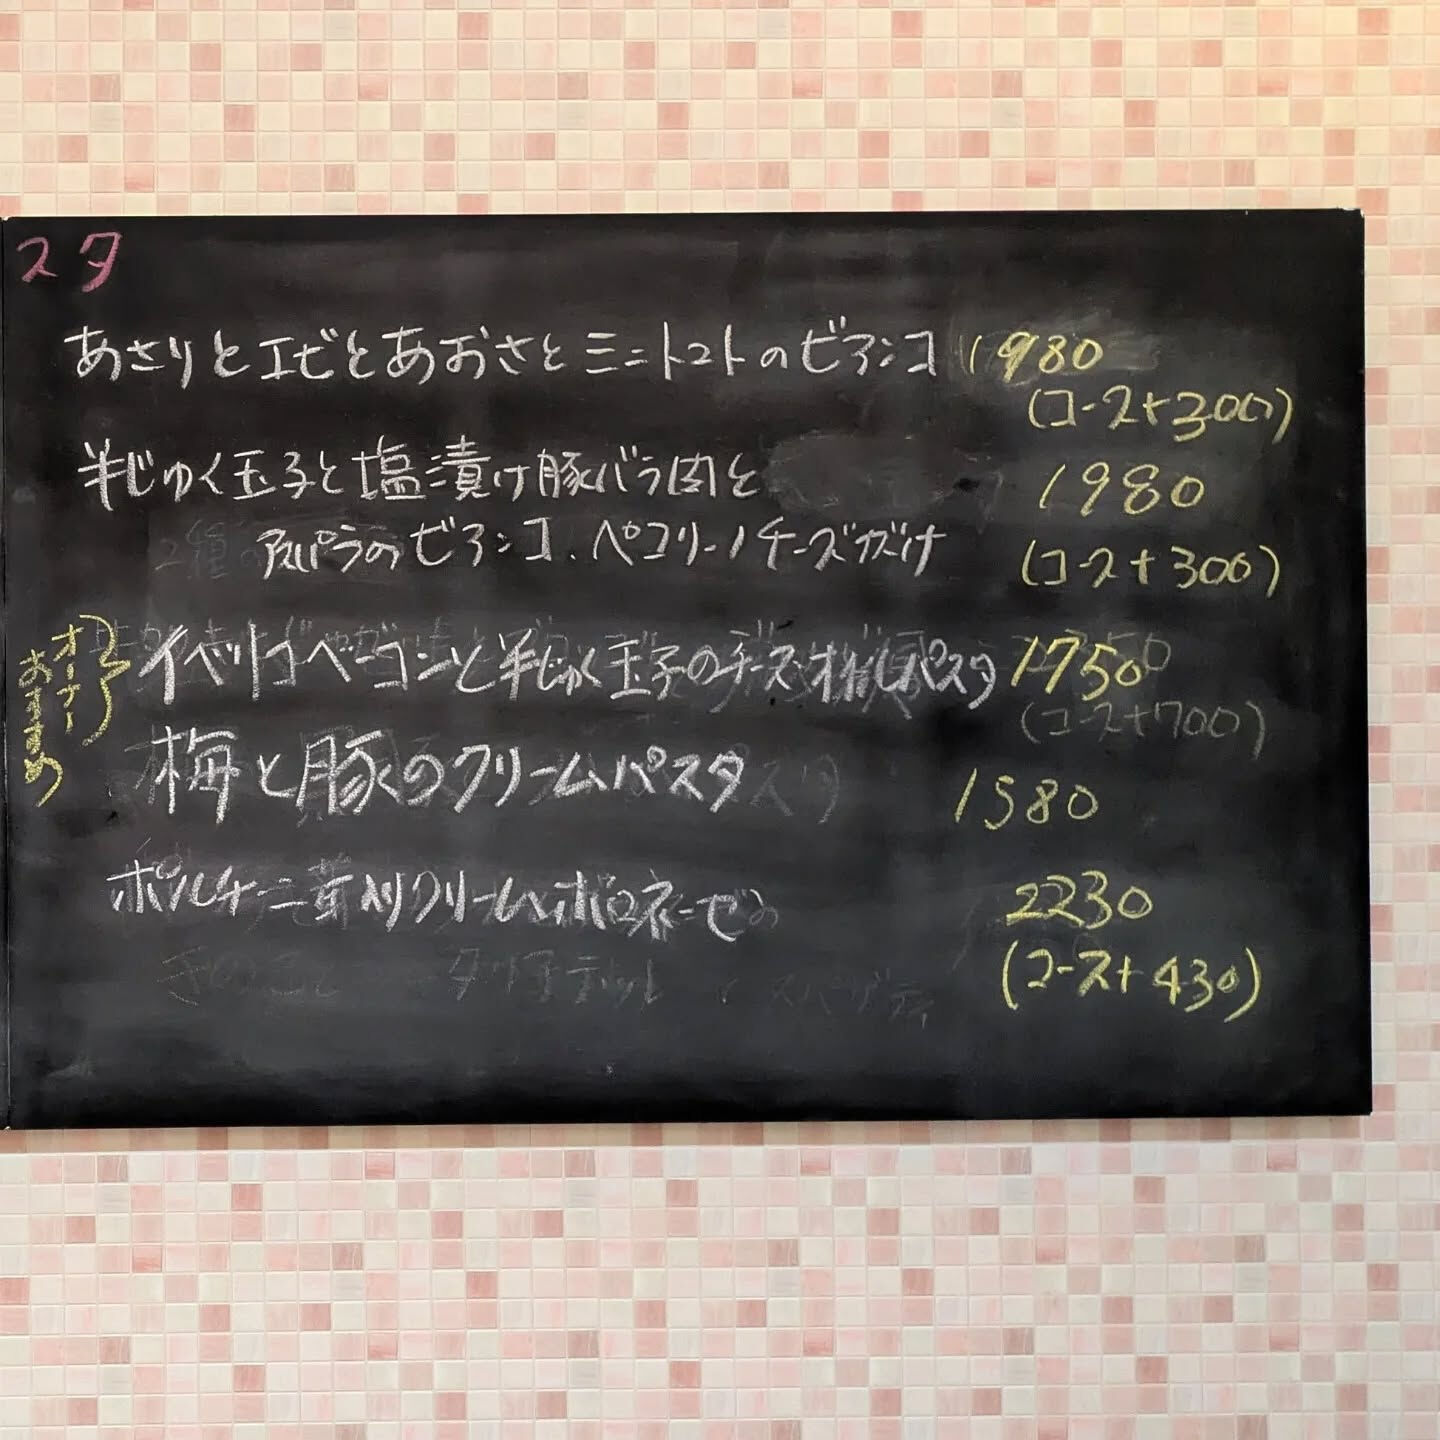 スタ
あさりとエビとあおさとミニトマトのビアンコ 1980
(コース+300)
半じゅく玉子と塩漬け豚バラ肉と 1980
アスパラのビアンコ、ペコリーノチーズがけ (コース+300)
オーナー
おすすめ
イベリコベーコンと半じゅく玉子のチーズオイルパスタ 1750
(コース+700)
梅と豚のクリームパスタ 1580
ポルチーニ茸入りクリームボロネーゼ 2230
(コース+430)